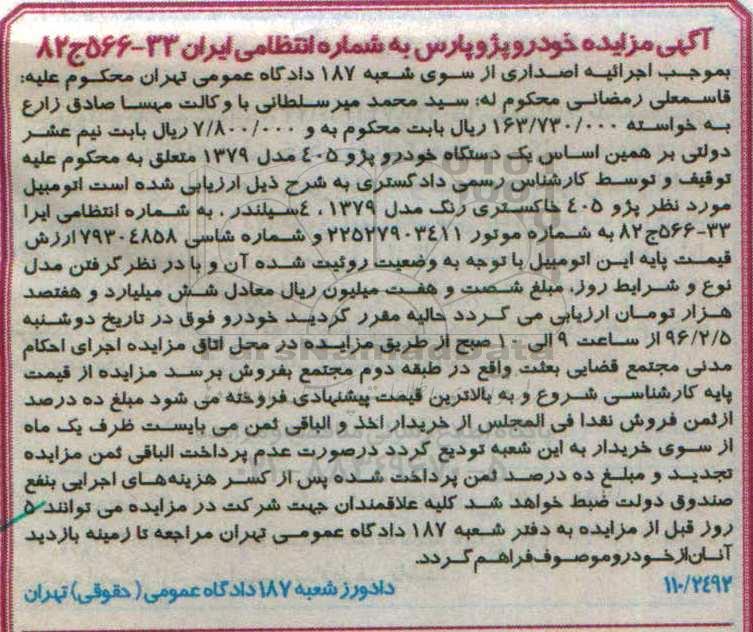 آگهی مزایده خودرو پژو پارس به شماره انتظامی ایران ۳۳-۵۶۶ج۸۲
بموجب اجرائیه اصداری از سوی شعبه ۱۸۷ دادگاه عمومی تهران محکوم علیه:
قاسمعلی رمضانی محکوم له: سید محمد میرسلطانی با وکالت مهسا صادق زارع
به خواسته ۱۶۳/۷۳۰/۰۰۰ ریال بابت محکوم به و ۷/۸۰۰/۰۰۰ ریال بابت نیم عشر
دولتی بر همین اساس یک دستگاه خودرو پژو ۴۰۵ مدل ۱۳۷۹ متعلق به محکوم علیه
توقیف و توسط کارشناس رسمی دادگستری به شرح ذیل ارزیابی شده است اتومبیل
مورد نظر پژو ۴۰۵ خاکستری رنگ مدل ۱۳۷۹ ، ۴سیلندر ، به شماره انتظامی ایرا
۳۳-۵۶۶ج۸۲ به شماره موتور ۲۲۵۲۷۹۰۳۴۱۱ و شماره شاسی ۷۹۳۰۴۸۵۸ ارزش
قیمت پایه این اتومبیل با توجه به وضعیت روئیت شده آن و با در نظر گرفتن مدل
نوع و شرایط روز، مبلغ شصت و هفت میلیون ریال معادل شش میلیارد و هفتصد
هزار تومان ارزیابی می گردد حالیه مقرر گردید خودرو فوق در تاریخ دوشنبه
۹۶/۲/۵ از ساعت ۹ الی ۱۰ صبح از طریق مزایده در محل اتاق مزایده اجرای احکام
مدنی مجتمع قضایی بعثت واقع در طبقه دوم مجتمع بفروش برسد مزایده از قیمت
پایه کارشناسی شروع و به بالاترین قیمت پیشنهادی فروخته می شود مبلغ ده درصد
ازثمن فروش نقدا فی المجلس از خریدار اخذ و الباقی ثمن می بایست ظرف یک ماه
از سوی خریدار به این شعبه تودیع گردد درصورت عدم پرداخت الباقی ثمن مزایده
تجدید و مبلغ ده درصد ثمن پرداخت شده پس از کسر هزینه‌های اجرایی بنفع
صندوق دولت ضبط خواهد شد کلیه علاقمندان جهت شرکت در مزایده می توانند ۵
روز قبل از مزایده به دفتر شعبه ۱۸۷ دادگاه عمومی تهران مراجعه تا زمینه بازدید
آنان از خودرو موصوف فراهم گردد.
۱۱۰/۲۴۹۲ دادورز شعبه ۱۸۷ دادگاه عمومی (حقوقی) تهران
ParsNamadData